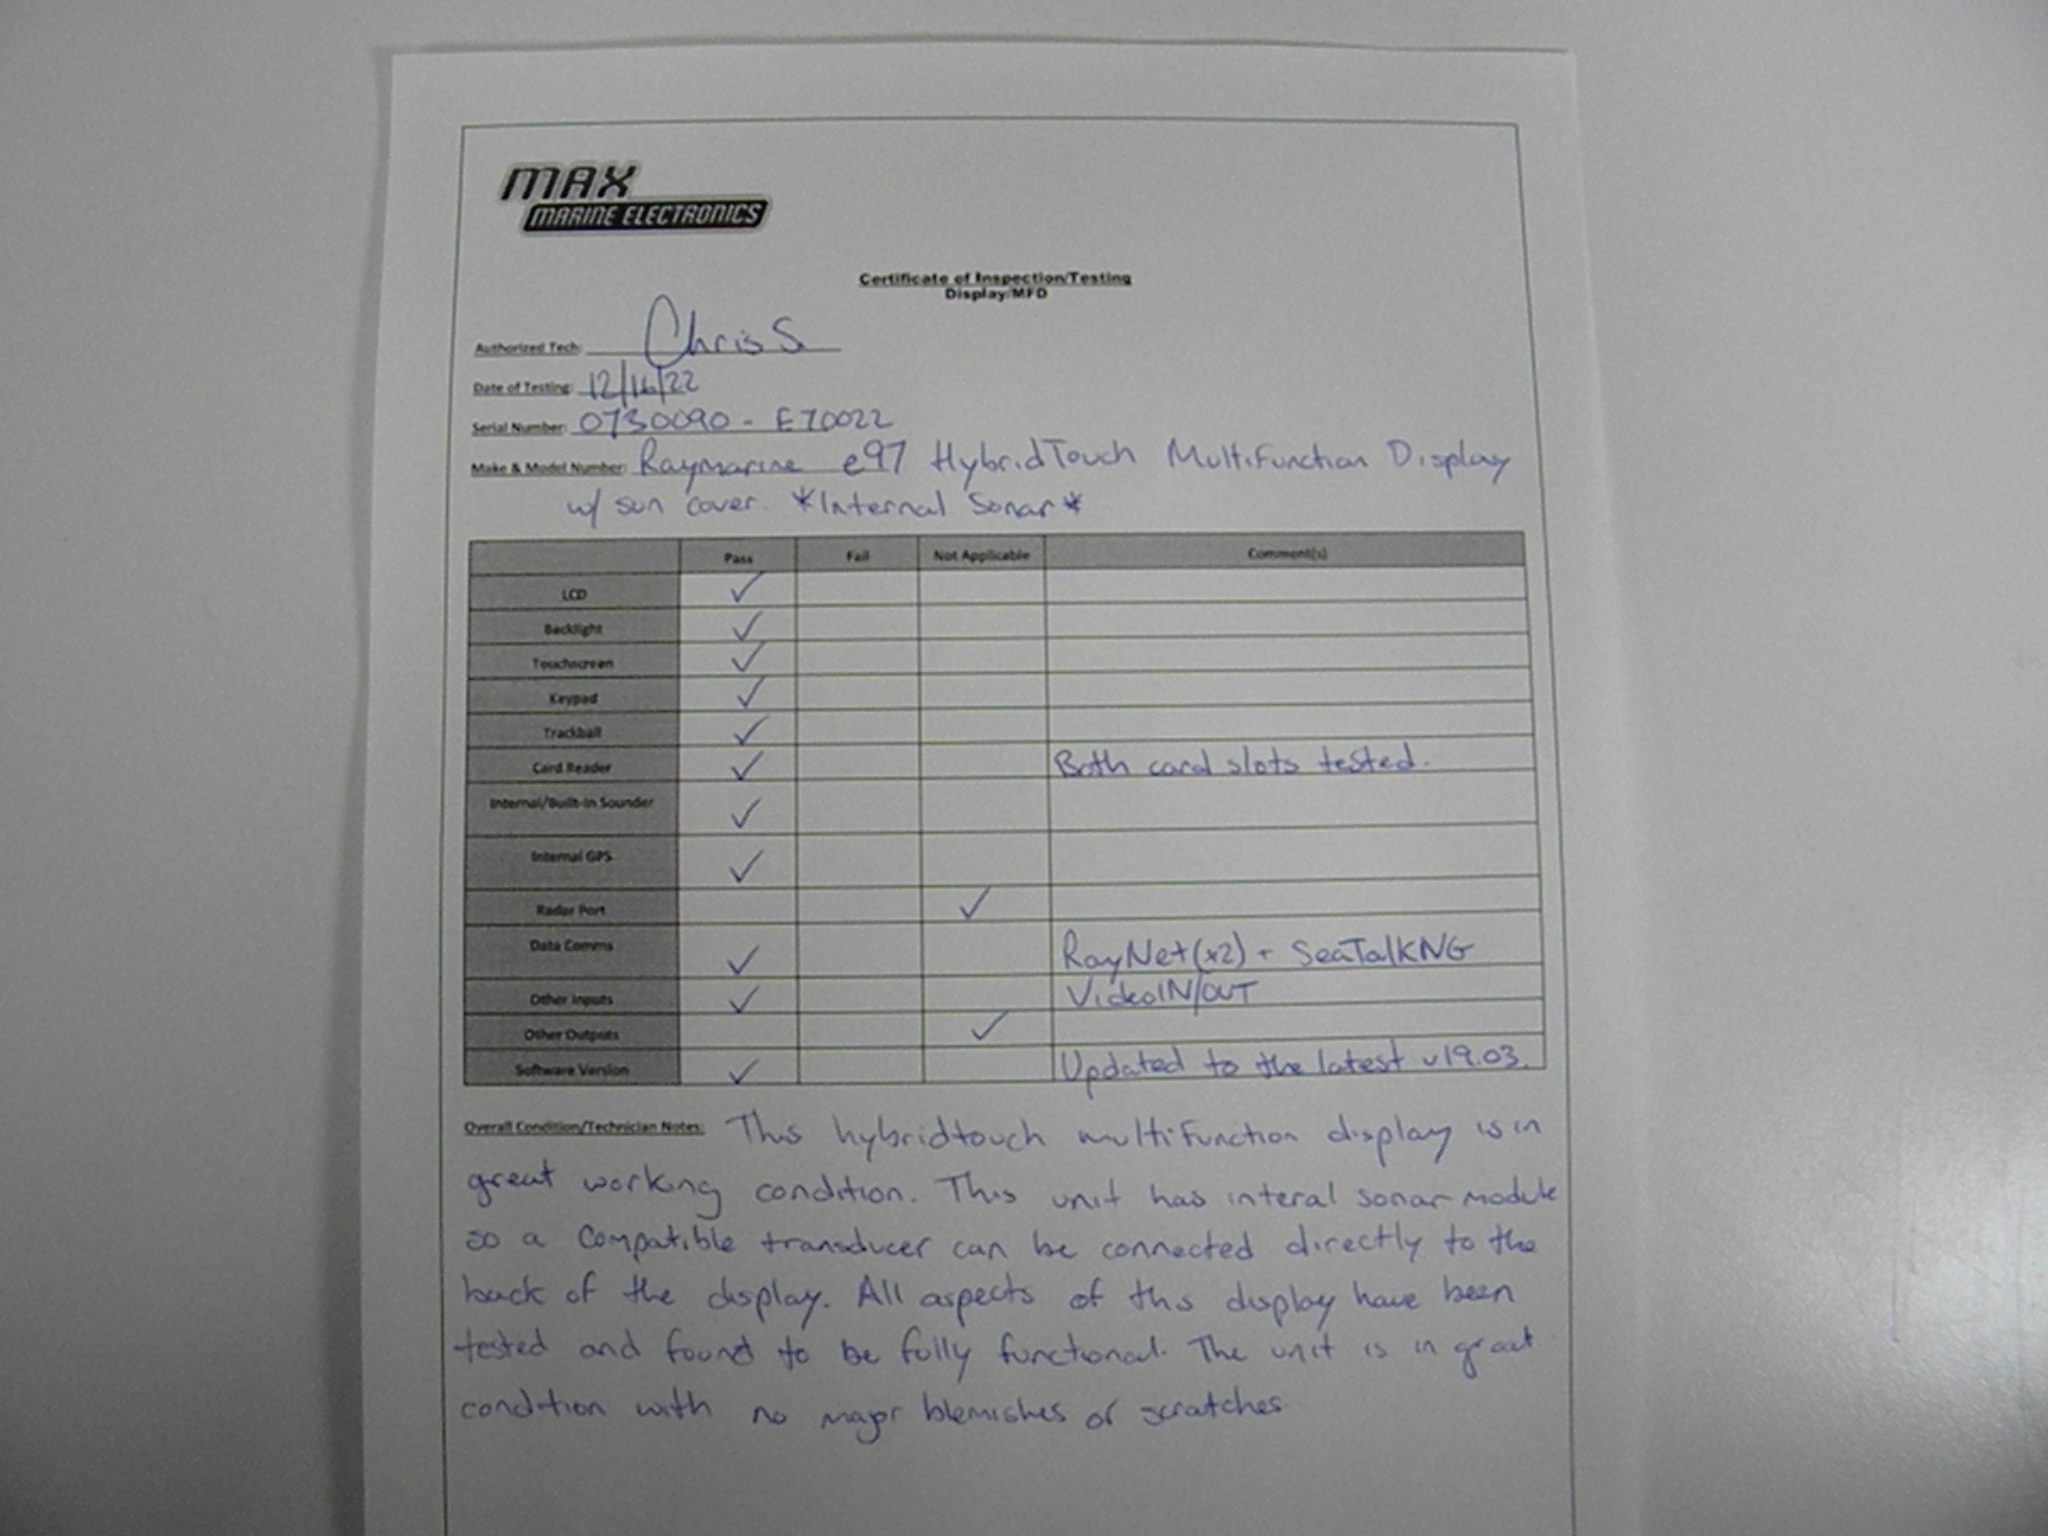 MAX
MARINE ELECTRONICS
Certificate of Inspection/Testing
Display/MFD
Authorized Tech: Chris S.
Date of Testing: 12/16/22
Serial Number: 0730090 - E70022
Make & Model Number: Raymarine e97 HybridTouch Multifunction Display
w/ sun cover. *Internal Sonar*
Pass Fail Not Applicable Comment(s)
LCD ✓
Backlight ✓
Touchscreen ✓
Keypad ✓
Trackball ✓
Card Reader ✓ Both card slots tested.
Internal/Built-In Sounder ✓
Internal GPS ✓
Radar Port ✓
Data Comms ✓ RayNet(x2) + SeaTalkNG
Other Inputs ✓ Video IN/OUT
Other Outputs ✓
Software Version ✓ Updated to the latest v19.03.
Overall Condition/Technician Notes: This hybridtouch multifunction display is in
great working condition. This unit has interal sonar module
so a compatible transducer can be connected directly to the
back of the display. All aspects of this display have been
tested and found to be fully functional. The unit is in great
condition with no major blemishes or scratches